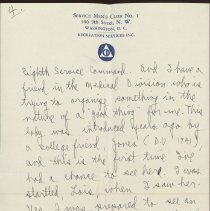 4.
SERVICE MEN'S CLUB NO. 1
306 9th Street, N. W.
WASHINGTON, D. C.
RECREATION SERVICES, INC.
Eighth Service Command. And I have a
friend in the Medical Division who is
trying to organize something in the
nature of a "good thing" for me. This
lady was introduced years ago by
a college friend, Jones (DU 1931),
and this is the first time I've
had a chance to see her. I was
startled, Lois, when I saw her.
I was prepared to see an